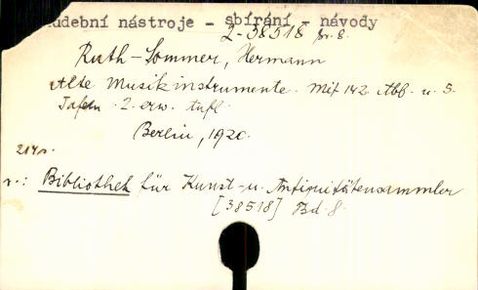 hudební nástroje - sbírání - návody
2-38518 Br. 8.
Ruth-Sommer, Hermann
Alte Musikinstrumente. Mit 142 Abb. u. 5.
Tafeln. 2. erw. Aufl.
Berlin, 1920.
214 s.
v.: Bibliothek für Kunst- u. Antiquitätensammler
[38518] Bd. 8.